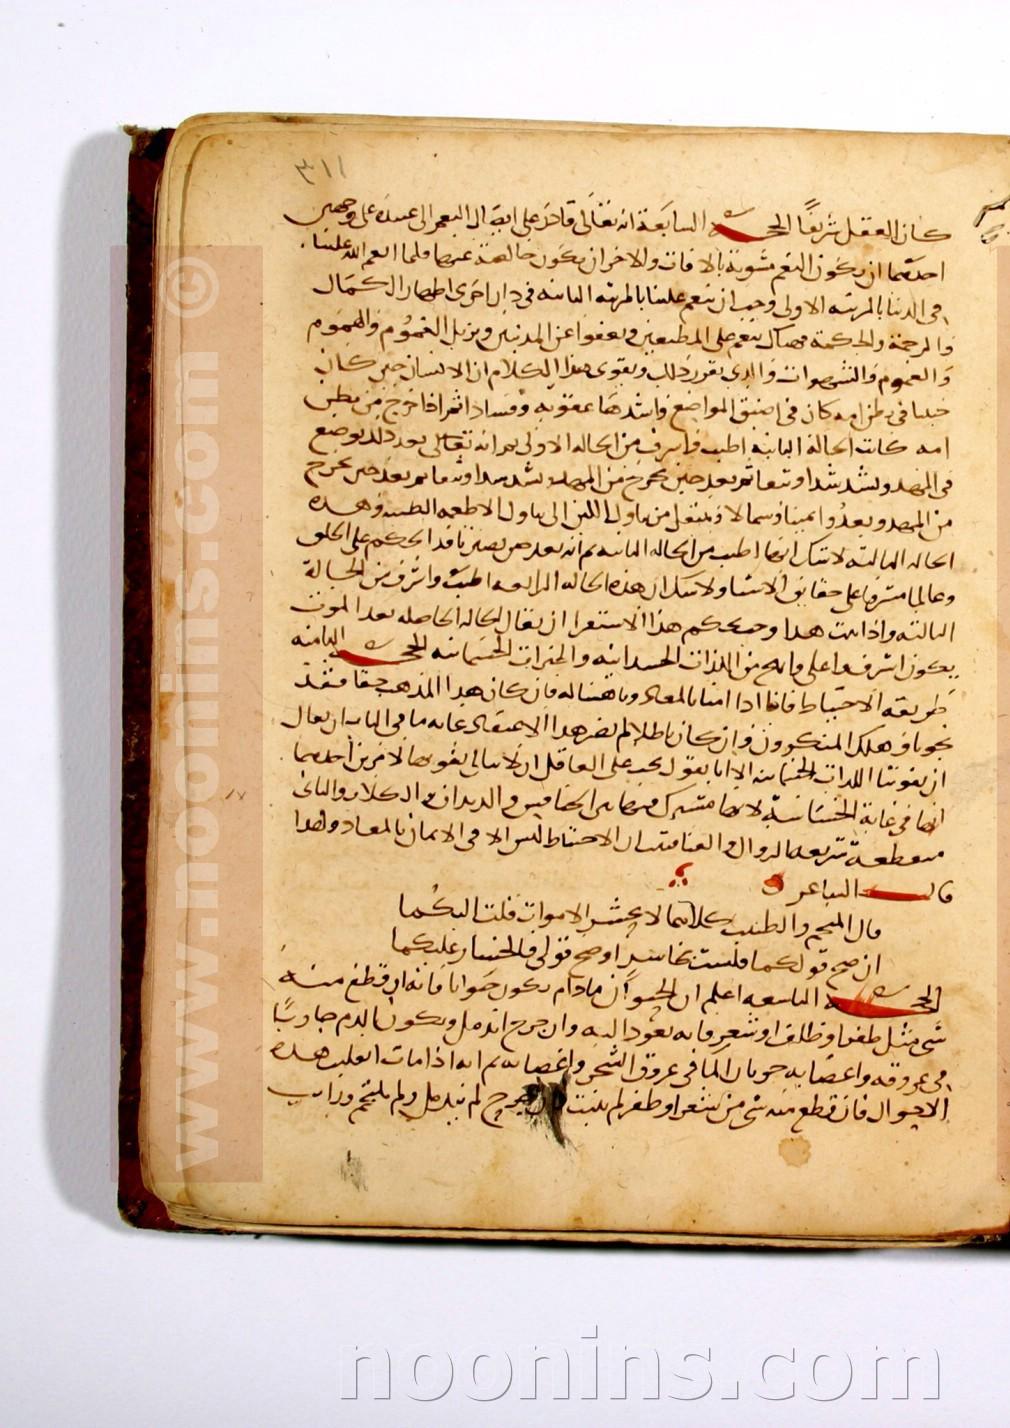 ٣١١
كان العقل شريفًا الحجة السابعة انه تعالى قادر على ايصال النعم الى عبيده على وجهين
احدهما ان يكون النعم مشوبة بالافات والاخر ان يكون خالصة عنها فلما انعم الله علينا
فى الدنيا بالمرتبه الاولى وجب ان ينعم علينا بالمرتبه الثانيه فى دار اخرى اظهارا لكمال
والرحمة والحكمة فهناك ينعم على المطيعين ويعفوا عن المذنبين ويزيل الغموم والهموم
والشهوات والذى يقرر ذلك ويقوى هذا الكلام ان الانسان حين كان
جنينا فى بطن امه كان فى اضيق المواضع واشدها عفونه وفسادا ثم اذا خرج من بطن
امه كانت الحالة الثانيه اطيب واشرف من الحاله الاولى ثم انه تعالى بعد ذلك يوضع
فى المهد ويشد شدا وثيقا ثم بعد حين يخرج من المهد
من المهد ويعدو يمينا وشمالا وينتقل من تناول اللبن الى تناول الاطعمه الطيبه وهذه
الحاله الثالثه لا شك انها اطيب من الحاله الثانيه ثم انه بعد حين يصير نافذ الحكم على الخلق
وعالما مشرفا على حقايق الاشيا ولا شك ان هذه الحاله الرابعه اطيب واشرف من الحالة
الثالثه واذا ثبت هذا وجب بحكم هذا الاستقرا ان يقال الحاله الحاصله بعد الموت
يكون اشرف واعلى وابهج من اللذات الجسدانيه والخيرات الجسمانيه الحجة الثامنه
طريقه الاحتياط فانا اذا امنا بالمعاد وتاهبنا له فان كان هذا المذهب حقا فقد
نجونا وهلك المنكرون وان كان باطلا لم يضر هذا الاعتقاد غايه ما فى الباب ان يقال
ان يفوتنا اللذات الجسمانيه الا انا نقول يجب على العاقل ان لا يبالى بفوتها لامرين احدهما
انها فى غاية الخساسة لانها مشترك فيها بين الخنافيس والديدان والكلاب والثانى
منقطعة سريعه الزوال والفنا فثبت ان الاحتياط ليس الا فى الايمان بالمعاد ولهذا
قال الشاعر
قال المنجم والطبيب كلاهما لا يحشر الاموات قلت اليكما
ان صح قولكما فلست بخاسر او صح قولى فالخسار عليكما
الحجة التاسعه اعلم ان الحيوان ما دام يكون حيوانا فانه ان قطع منه
شى مثل ظفر او ظلف او شعر فانه يعود اليه وان جرح اندمل ويكون الدم جاريًا
فى عروقه واعضايه جريان الما فى عروق الشجر واغصانه ثم انه اذا مات انقلبت هذه
الاحوال فان قطع منه شى من شعر او ظفر لم ينبت وان جرح لم يندمل ولم يلتحم ورايت
www.noonins.com ©
noonins.com